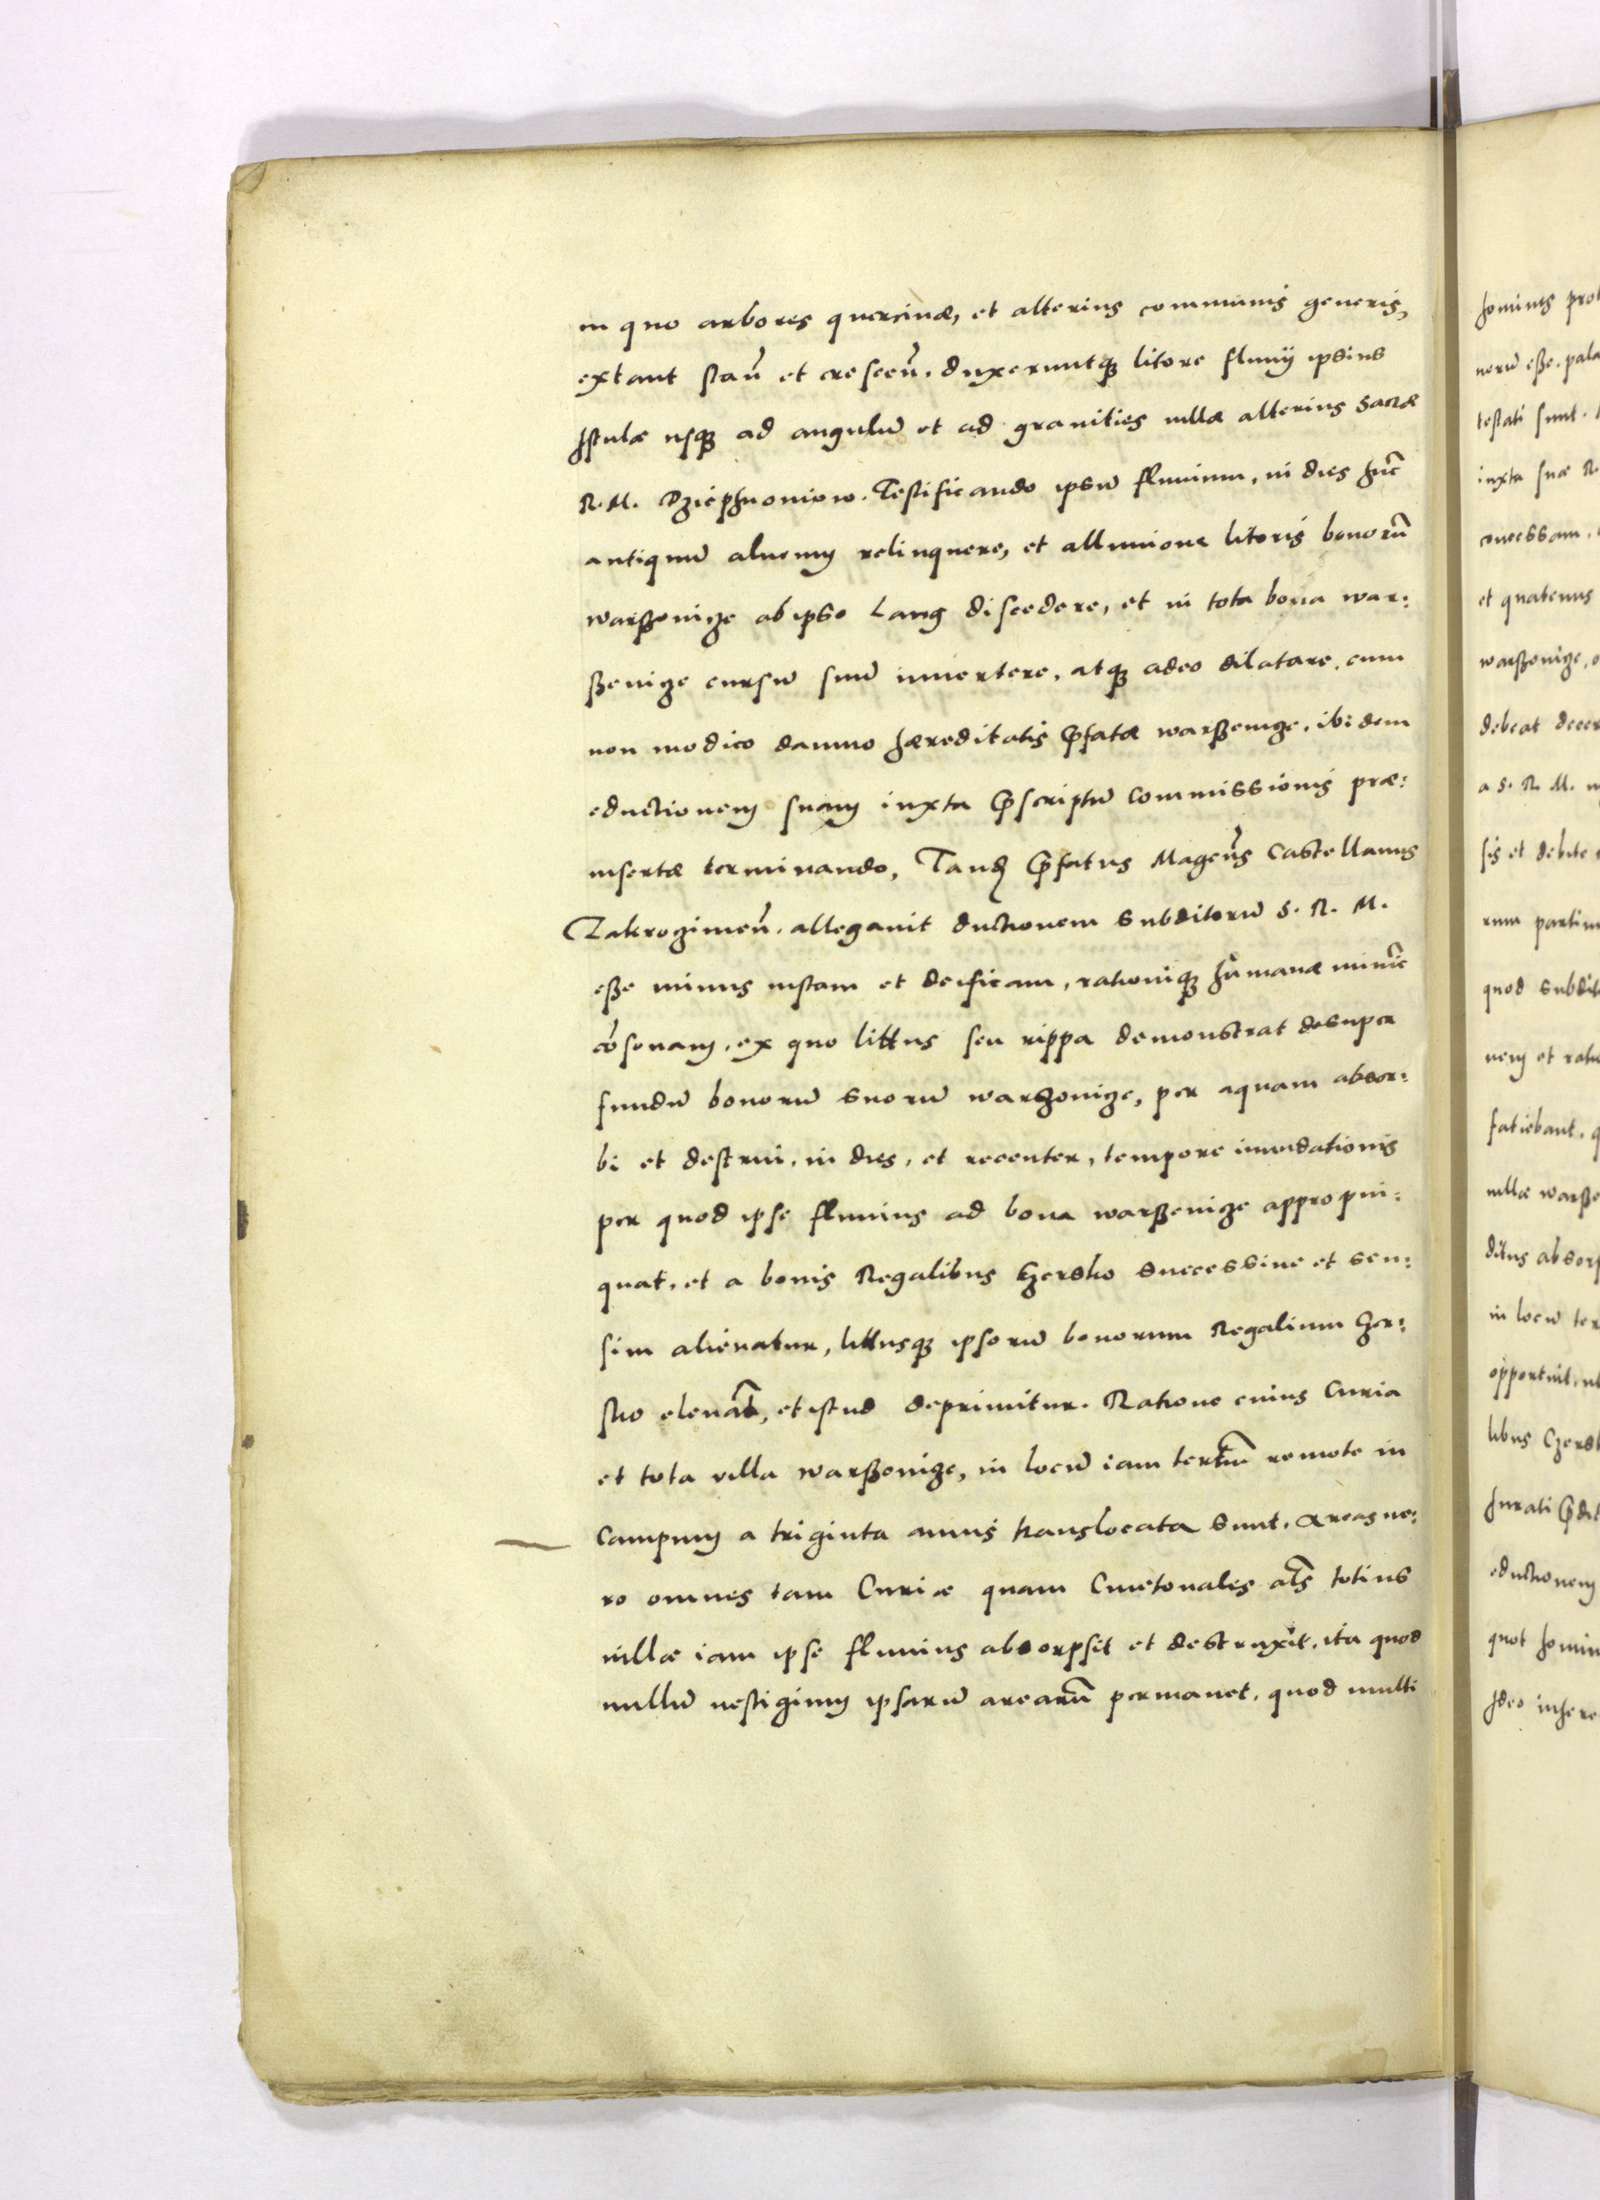 in quo arbores quercinæ, et alterius communis generis,
extant stan̄ et crescen̄. duxeruntq3 litore fluuij ipsius
Istulæ usq3 ad angulū et ad granities uillæ alterius Sacræ
R. M. Dziephnoniow. Testificando ipsū fluuium, in dies hūc
antiquū alueum relinquere, et alluuione litoris bonorū
warßenicze ab ipso Lang discedere, et in tota bona war:
ßenicze cursū suū inuertere, atq3 adeo dilatare, cum
non modico damno hæreditatis p̄fatæ warßenicze. ibidem
eductionem suam iuxta p̄scriptū commissionis præ:
insertæ terminando, Tandē p̄fatus Magcūs Castellanus
Zakrogimen̄. allegauit ductionem subditorū S. R. M.
eße minus iustam et deificam, rationiq3 humanæ minīe
cōsonam, ex quo littus seu rippa demonstrat desuper
fundū bonorū suorū warszenicze, per aquam absor:
bi et destrui, in dies, et recenter, tempore inundationis
per quod ipse fluuius ad bona warßenicze appropin:
quat, et a bonis Regalibus Czersko successiue et sen:
sim alienatur, littusq3 ipsorū bonorum Regalium Czer:
sko eleuat̄, et istud deprimitur. Ratione cuius Curia
et tota villa warßenicze, in locū iam tertiū remote in
Campum a triginta annis translocata sunt. Areas ue:
ro omnes tam Curiæ quam Cmetonales al̄s totius
uillæ iam ipse fluuius absorpsit et destruxit, ita quod
nullū uestigium ipsarū arearū permanet, quod multi
homines
nerū eße. pala
testati sunt.
iuxta suæ R.
concessam.
et quatenus
warßenicze,
debeat decer
a S. R. M.
sis et debite
rum partium
quod subdit
nem et ratio
fatiebant.
uillæ warße
ditus absorp
in locū ter
opportuit. ut
libus Czersk
Iurati p̄dict
eductionem
quot homin
Ideo inhere